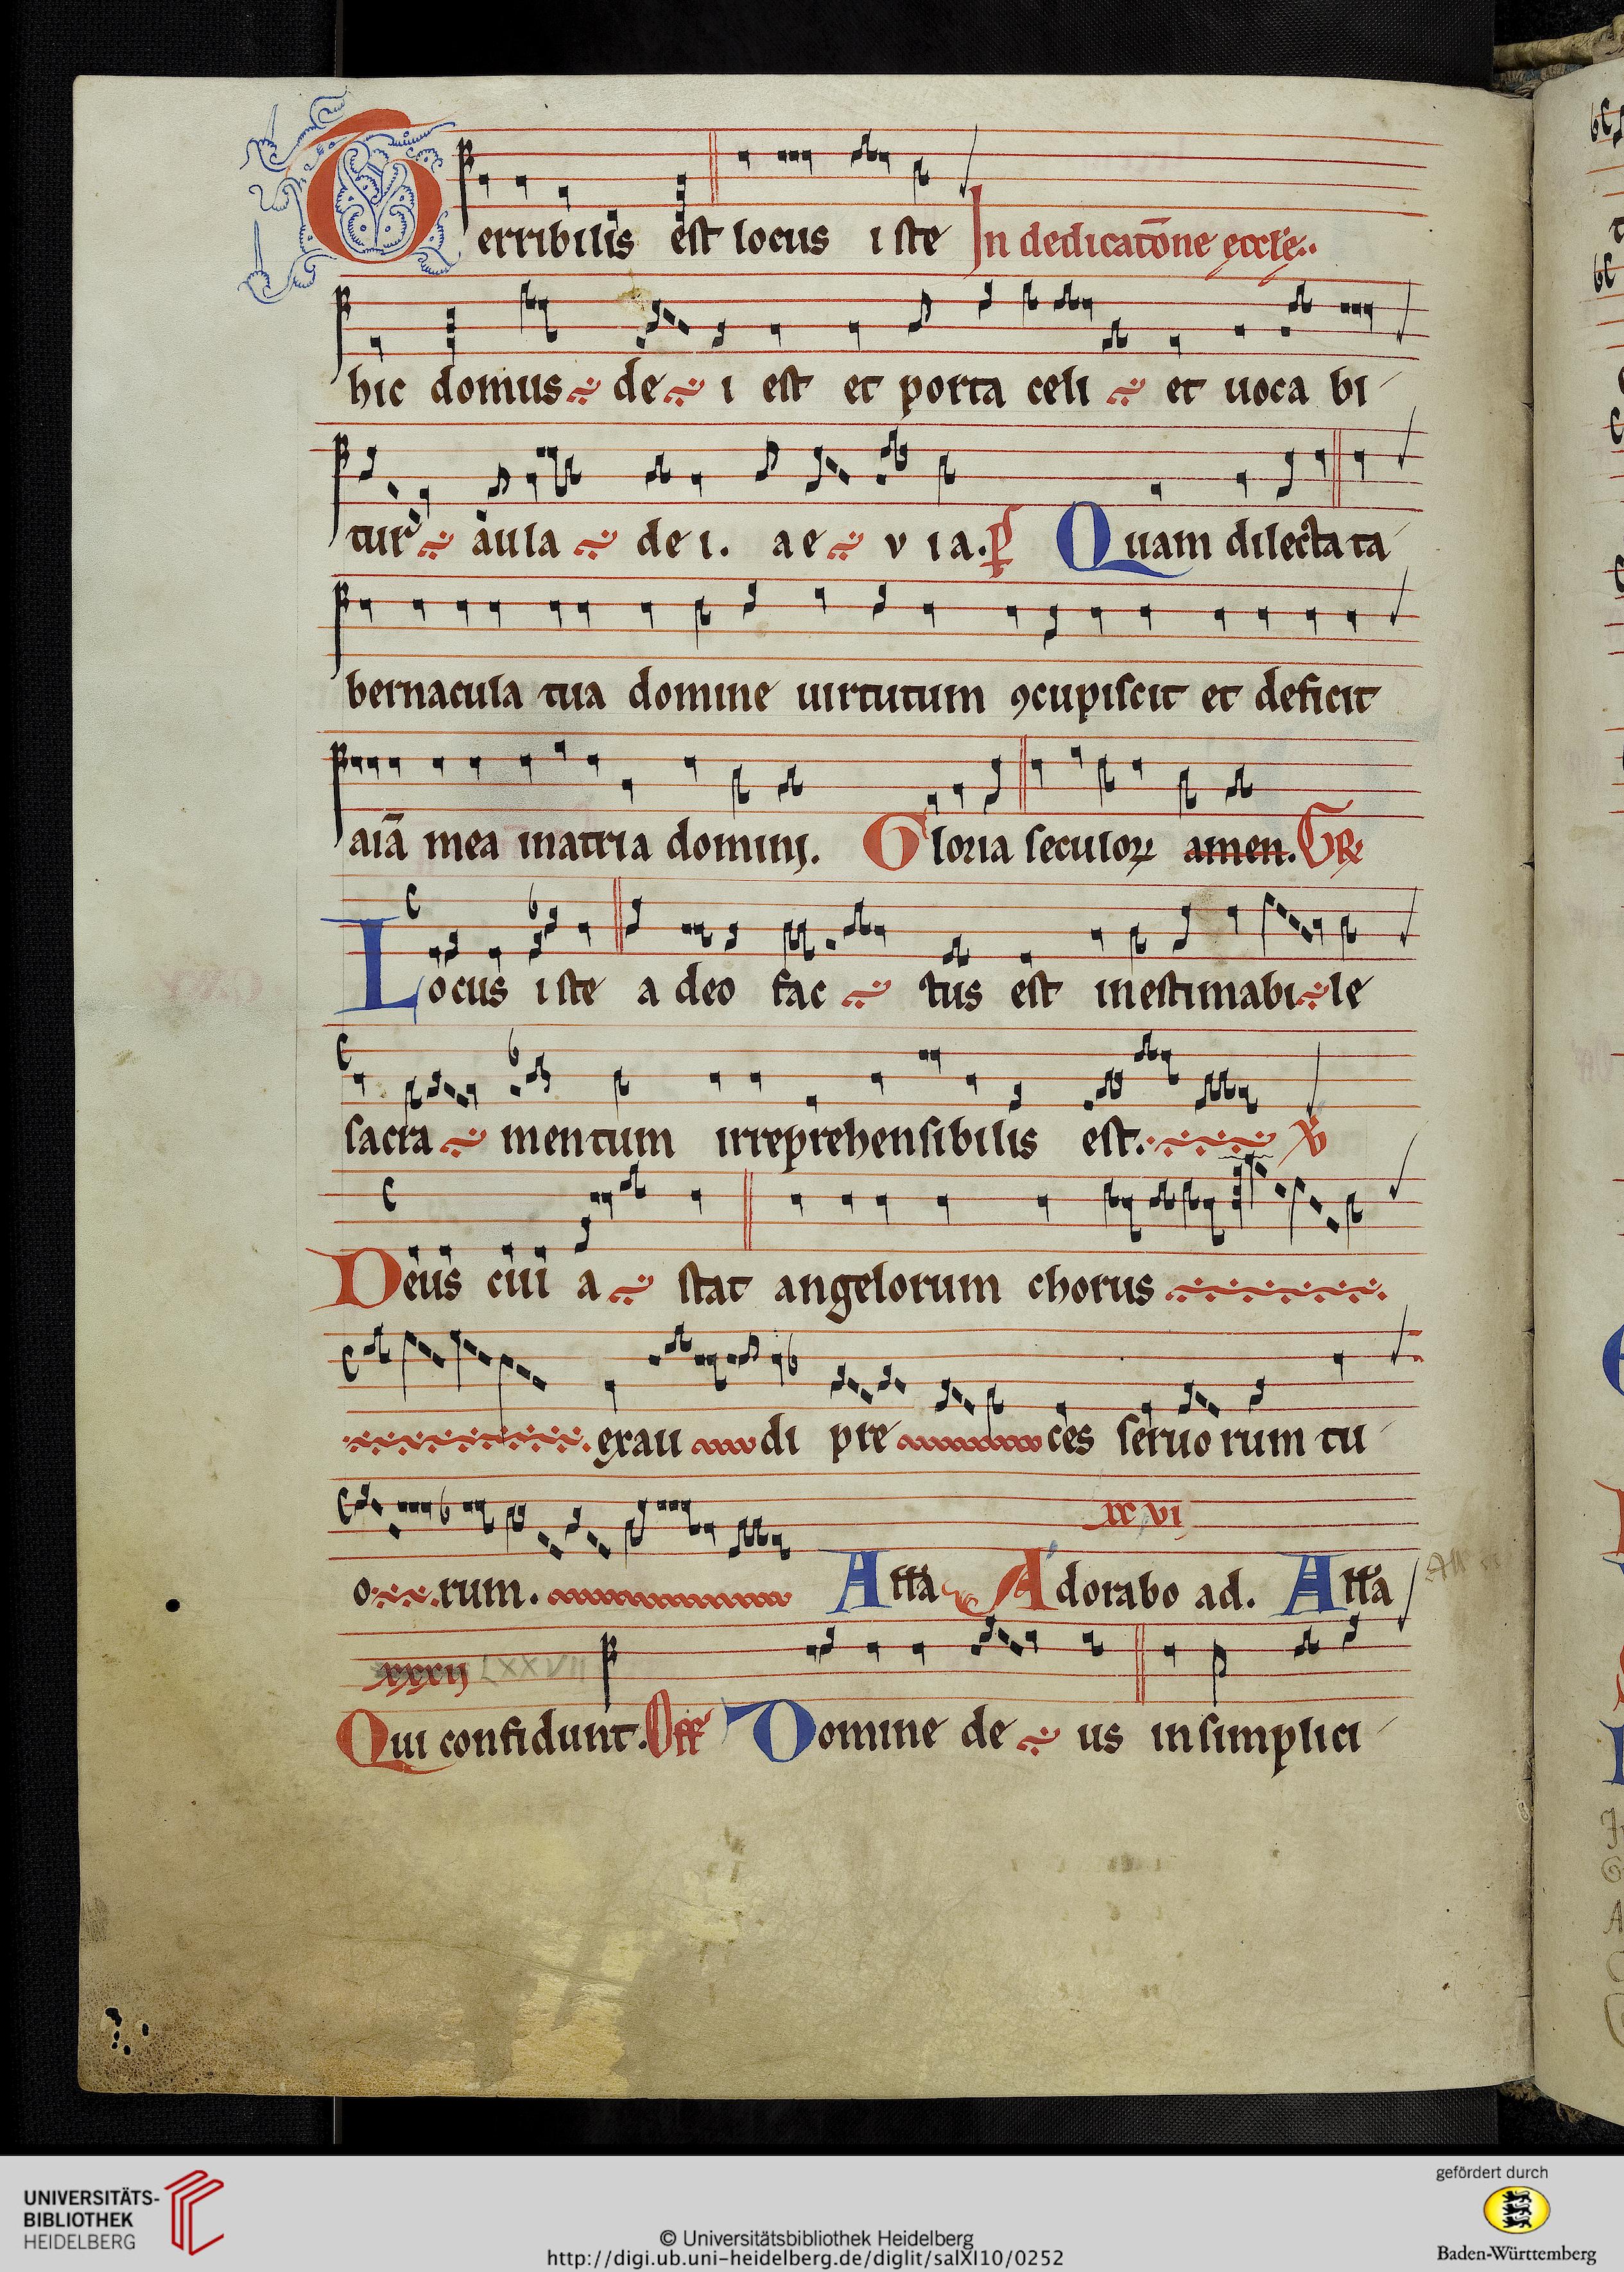 Terribilis est locus iste In dedicatōne eccl'e.
hic domus de i est et porta celi et uoca bi
tur aula dei. ae v ia. p̄ Quam dilecta ta
bernacula tua domine uirtutum ꝯcupiscit et deficit
aiā mea inatria domini. Gloria seculoꝝ amen. GR
Locus iste a deo fac tus est inestimabi le
sacra mentum irreprehensibilis est. V
Deus cui a stat angelorum chorus
exau di pre ces seruorum tu
xxvi
o rum. All'a Adorabo ad. All'a
xxxij LXXVII
Qui confidunt. Off Domine de us insimplici
UNIVERSITÄTS-
BIBLIOTHEK
HEIDELBERG
© Universitätsbibliothek Heidelberg
http://digi.ub.uni-heidelberg.de/diglit/salXI10/0252
gefördert durch
Baden-Württemberg